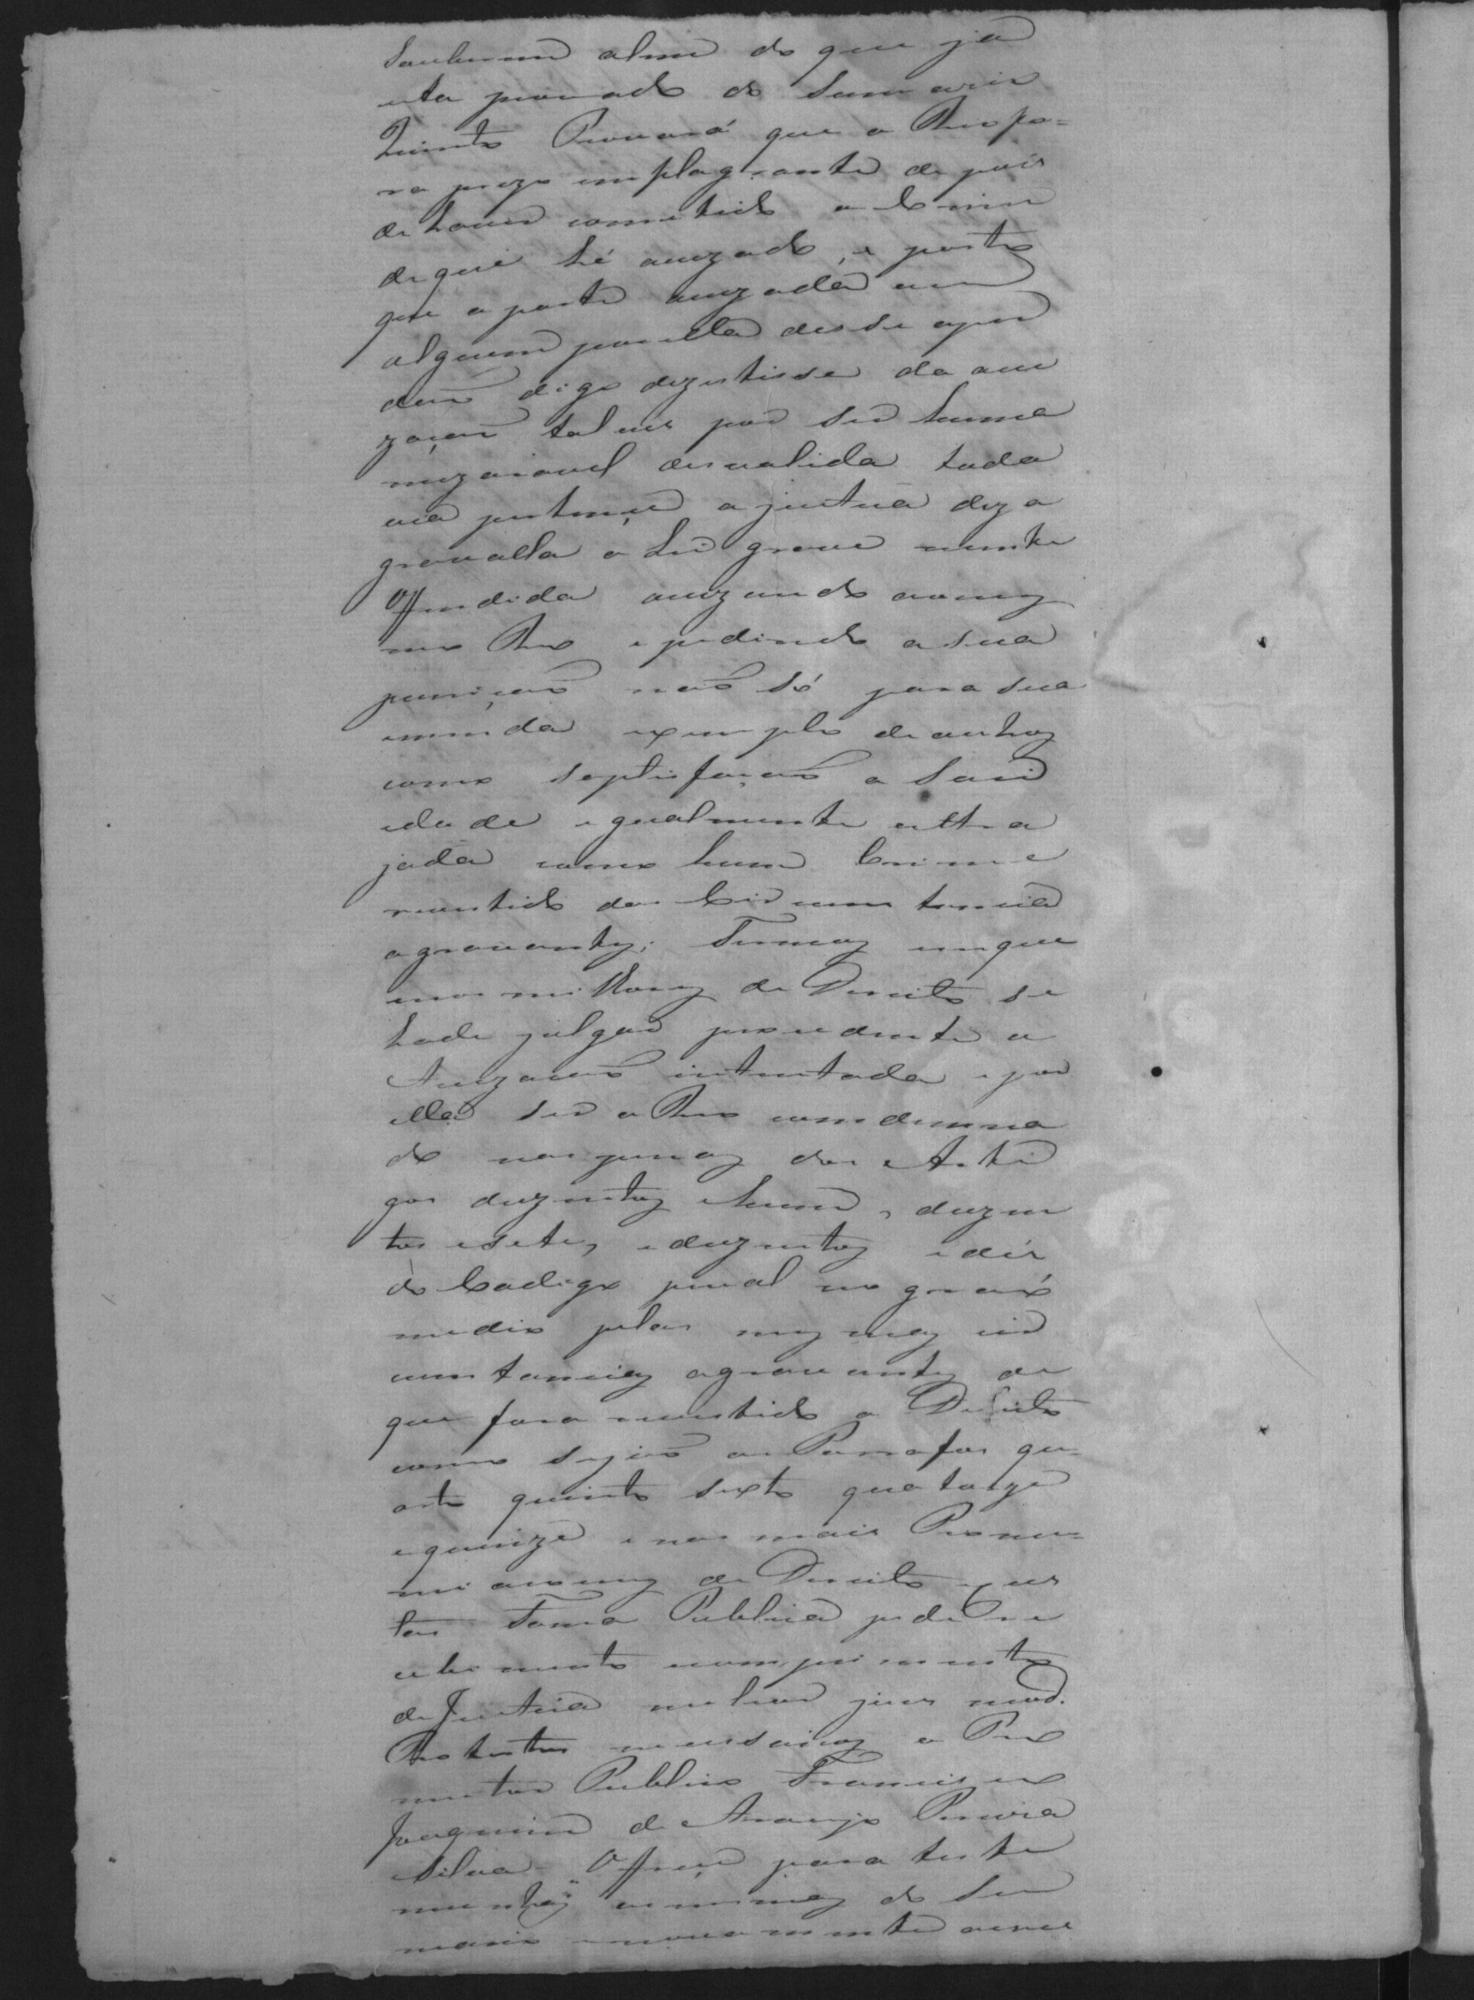 souberem alem do que já
esta provado do Summario
Quinto Provará que o Reo fo=
ra prezo emflagrante depois
de haver comettido o Crime
deque hé acuzado, e posto
que a parte acuzada ou
alguem por ella desse
digo dezestisse da acu
zaçaõ talves por ser huma
mizeravel desvalida toda
via pertence ajustiça deza
gravalla a ser grave mente
Offendida acuzando aomes
mo Reo epedindo a sua
puniçaõ naõ só para sua
emenda exemplo deoutros
como saptisfaçaõ a Soci
edade igualmente ultra
jada como hum Crime
revestido das Circunstancias
agravantes; Termos emque
nos milhores de Direito se
hade julgar procedente a
Acuzaçaõ intentada epor
ella ser o Reo comdemna
do nas penas dos Arti
gos duzentos ehum, duzen
tos esete, eduzentos edés
do Codigo penal no gráo
medio pelas mesmas cir
cunstancias agravantes de
que fora revestido o Delicto
como sejaõ os Parrafos qu=
arto quinto sexto quatorze
equinze enos mais Pronun=
de Direito
Fama Publica pede re
cebimento comprimento
deJustiça melhor juis mod.
Protestos necessarios o Pro
motor Publico Francisco
Joaquim de Araujo Pereira
Silva - Offrece para teste
munhas as mesmas do Sum
mario enovamente